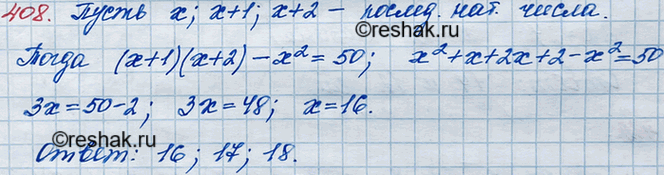 408. Пусть x; x+1; x+2 – послед. нат. числа.
Тогда (x+1)(x+2) – x² = 50; x²+x+2x+2–x²=50
3x=50-2; 3x=48; x=16.
Ответ: 16; 17; 18.
©reshak.ru
©reshak.ru